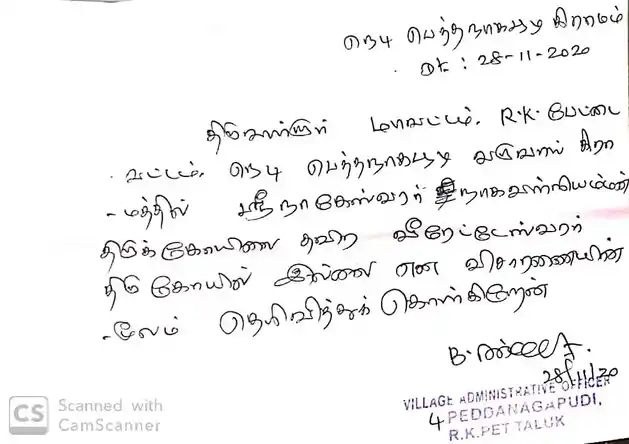 எ௩4 பெத்தநாகபூடி கிராமம்
Dt : 28-11-2020
திருவள்ளூர் மாவட்டம், R.K. பேட்டை
வட்டம், பெத்தநாகபூடி வருவாய் கிரா
-மத்தில் ஸ்ரீ நாகேஸ்வரர் நாகவள்ளியம்மன்
திருக்கோயிலை தவிர வீரேட்டேஸ்வரர்
திருகோயில் இல்லை என விசாரணையின்
-மூலம் தெரிவித்துக் கொள்கிறேன்
28/11/20
VILLAGE ADMINISTRATIVE OFFICER
4 PEDDANAGAPUDI,
R.K.PET TALUK
CS Scanned with
CamScanner